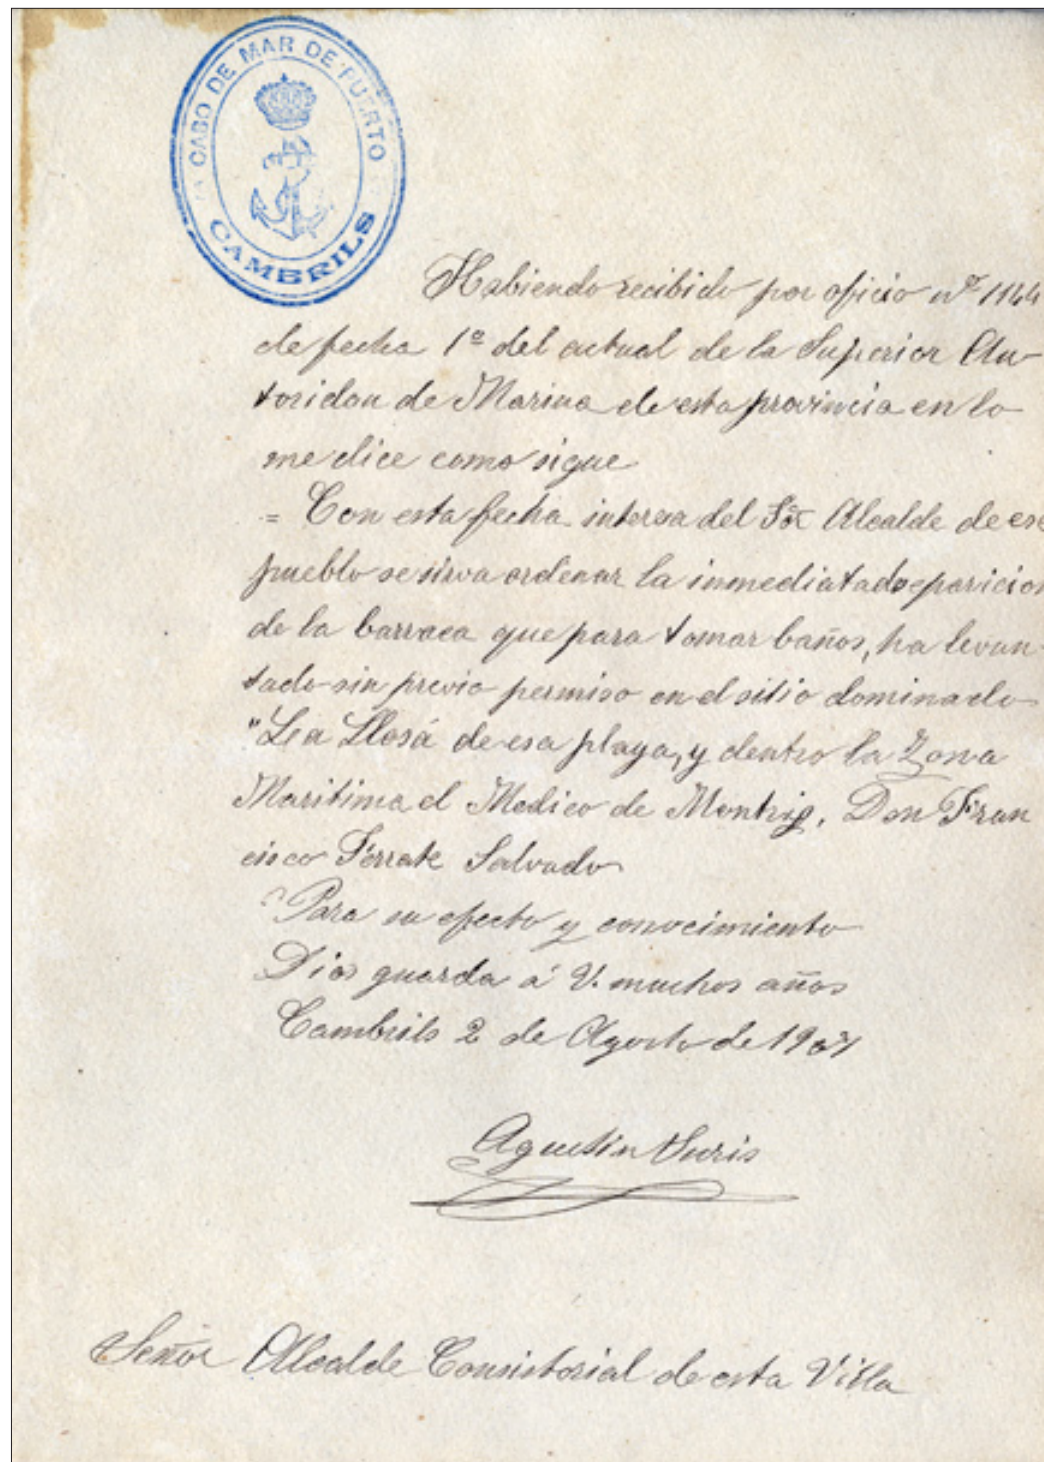 CABO DE MAR DE PUERTO
CAMBRILS
Habiendo recibido por oficio nº 1144
de fecha 1º del actual de la Superior Au-
toridau de Marina de esta provincia en lo
me dice como sigue
= Con esta fecha interesa del Sor Alcalde de ese
pueblo se sirva ordenar la inmediata
de la barraca que para tomar baños, ha levan-
tado sin previo permiso en el sitio dominado
"La Llosá de esa playa, y dentro la Zona
Maritima el Medico de Montrig, Don Fran
cisco Ferrate Salvado
Para su efecto y conocimiento
Dios guarda á V. muchos años
Cambrils 2 de Agosto de 1907
Agustin Suris
Señor Alcalde Consistorial de esta Villa